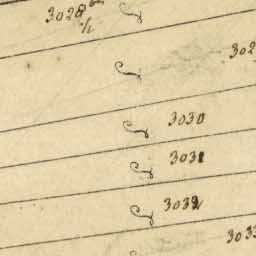 3028
1/2
302
3030
3031
3032
3033